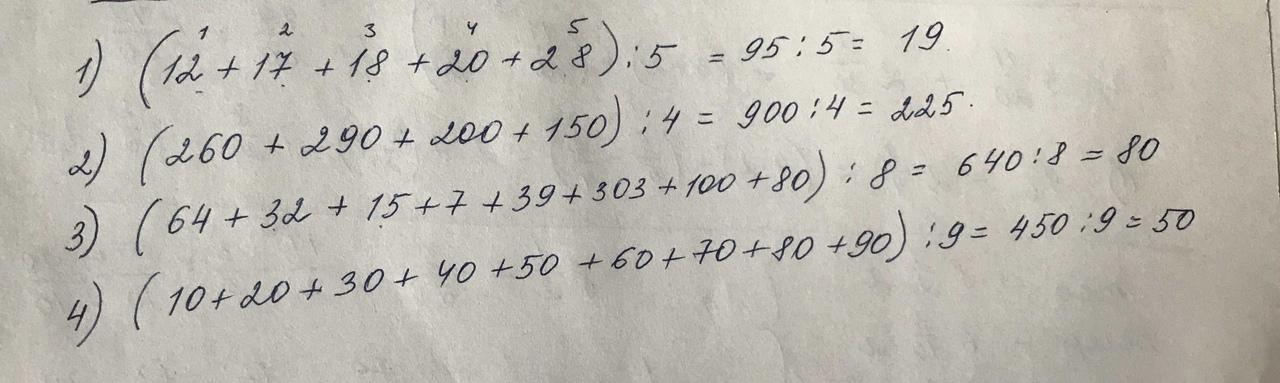 1 2 3 4 5
1) (12 + 17 + 18 + 20 + 28) : 5 = 95 : 5 = 19.
2) (260 + 290 + 200 + 150) : 4 = 900 : 4 = 225.
3) (64 + 32 + 15 + 7 + 39 + 303 + 100 + 80) : 8 = 640 : 8 = 80
4) (10 + 20 + 30 + 40 + 50 + 60 + 70 + 80 + 90) : 9 = 450 : 9 = 50